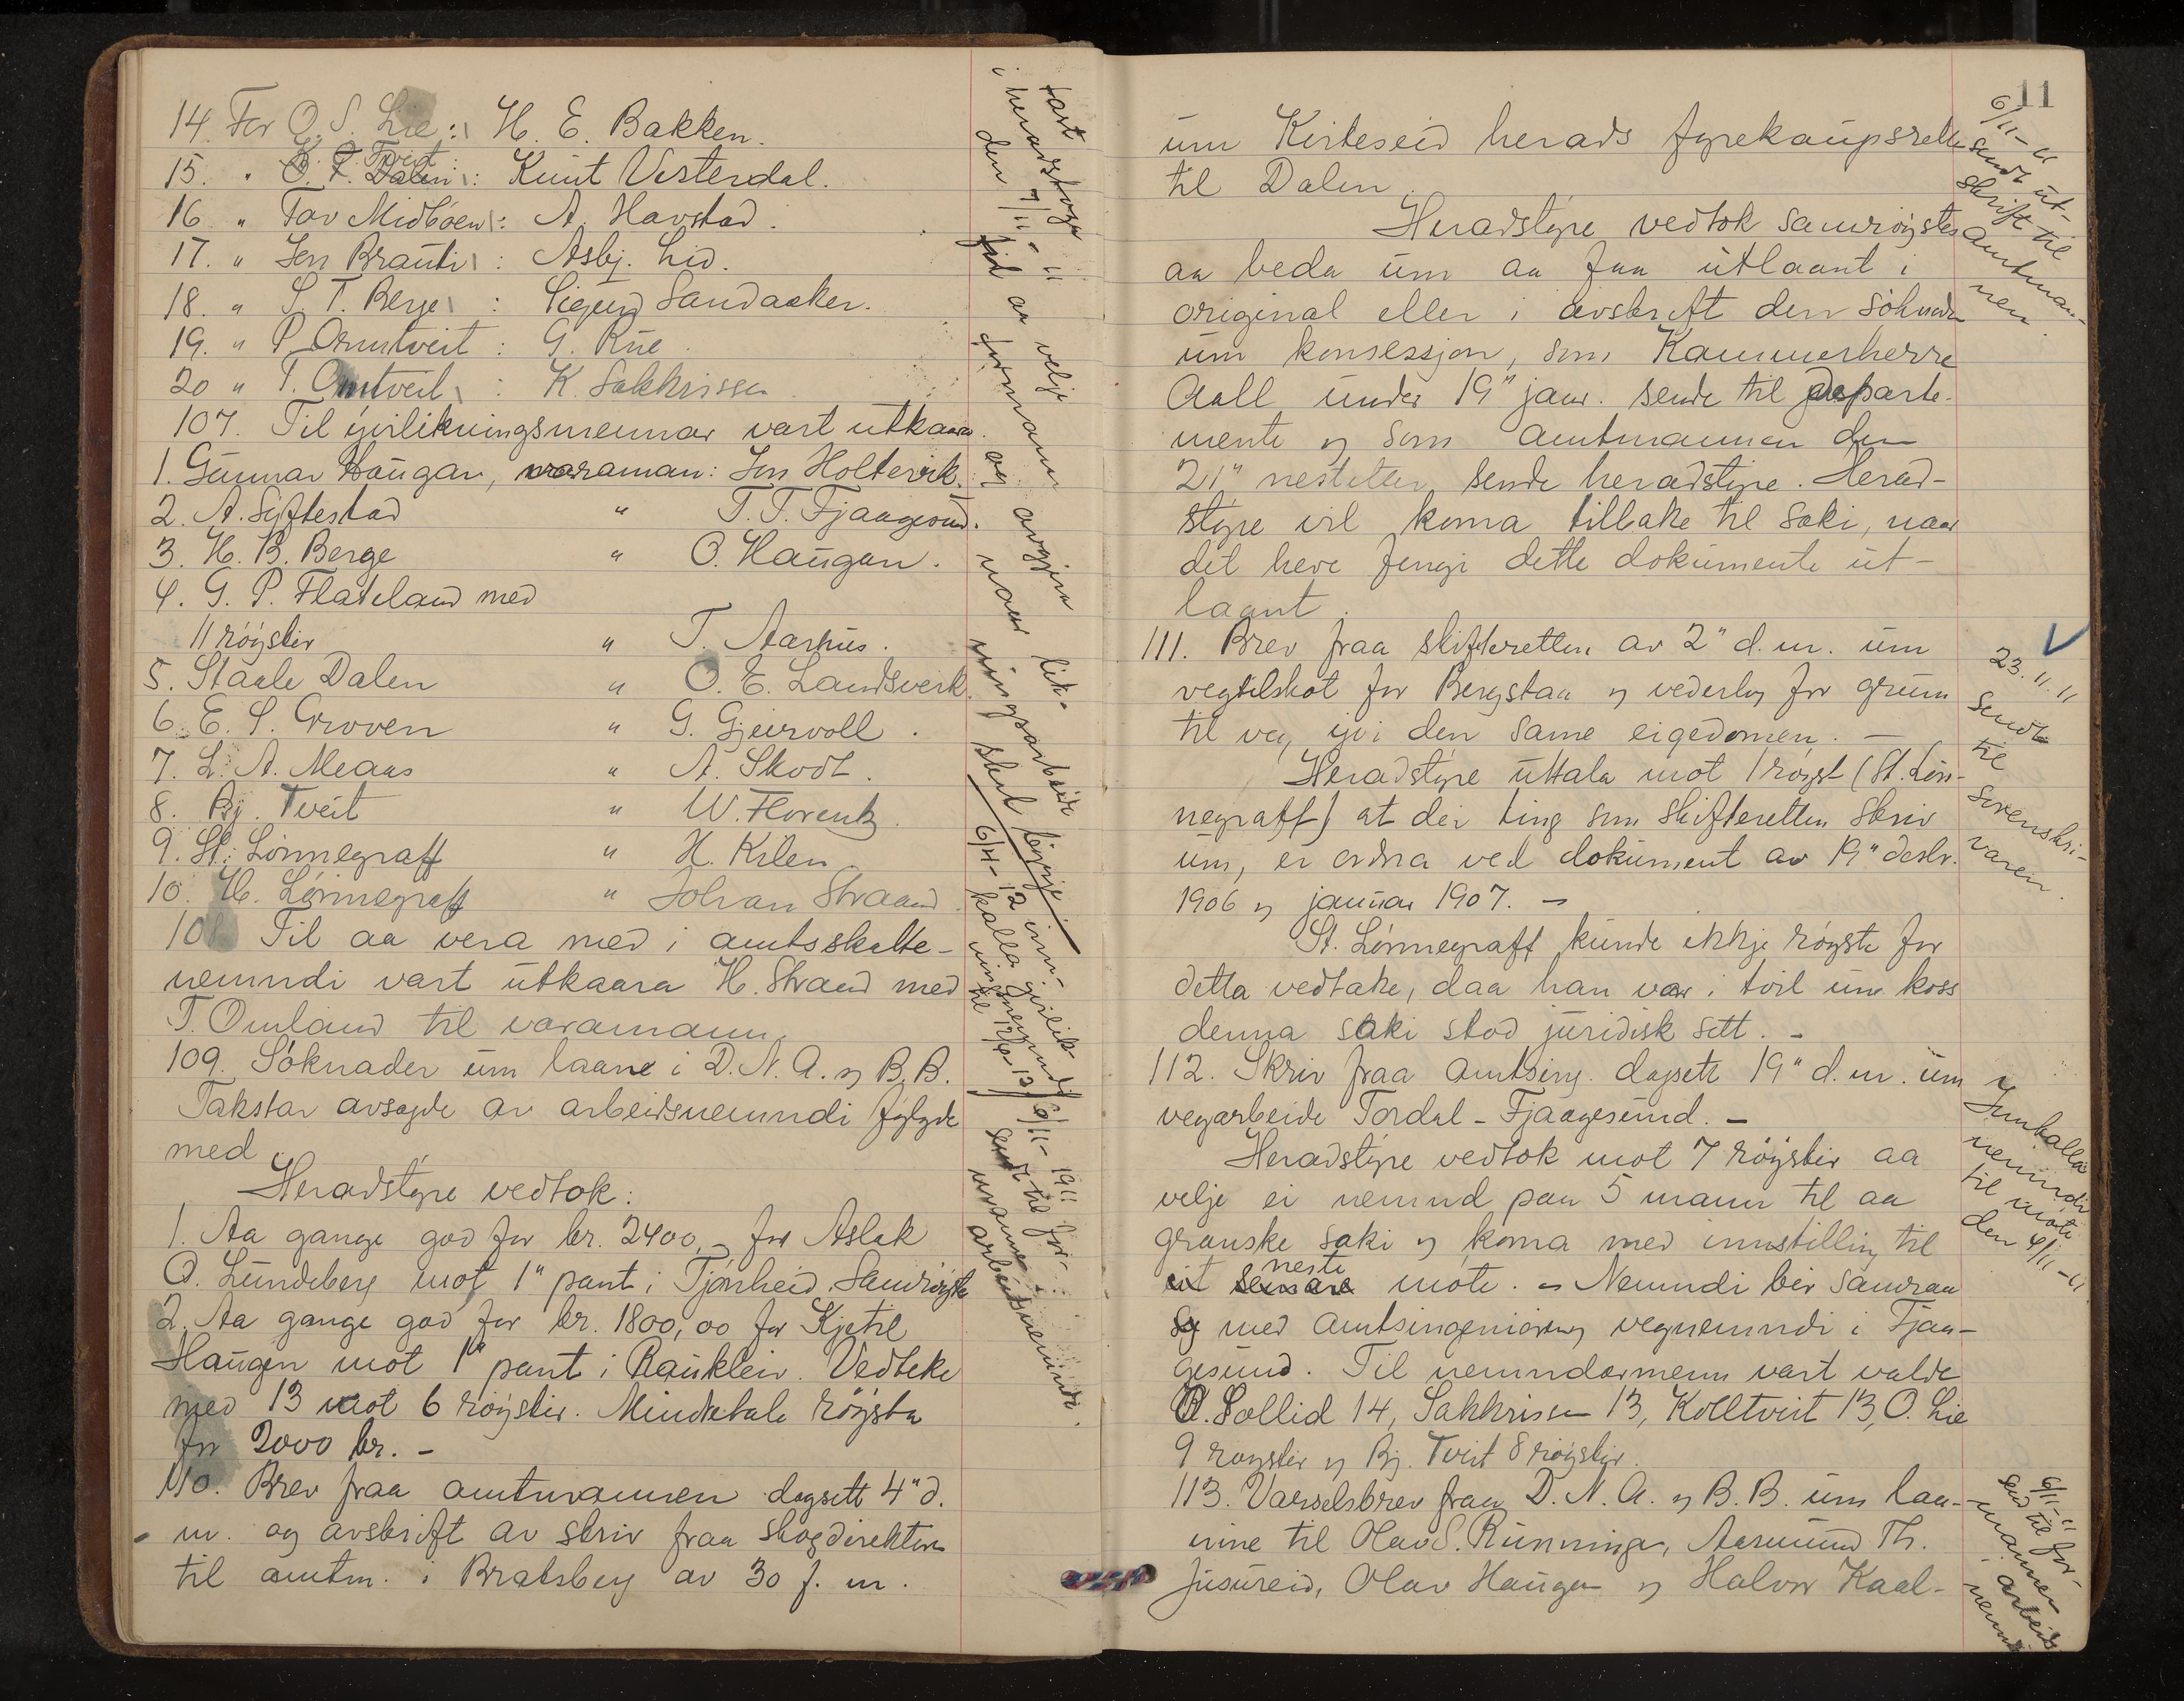 14. For O. S. Lie : H. E. Bakken.
K. O. Tveit
15. " O. T. Dalen : Knut Vesterdal.
16. " Tov Midbøen : A. Havstad.
17. " Jon Brauti : Asbj. Lid.
18. " S. T. Berge : Sigurd Sandaaker.
19. " P. Omtveit : G. Rue.
20 " T. Omtveit : K. Sakkrissen
107. Til yvirlikningsmennar vart utkaara.
1. Gunnar Haugan, varaman: Jon Holtevik.
2. A. Siftestad " T. T. Fjaagesund.
3. H. B. Berge " O. Haugan.
4. G. P. Flateland med
11 røyster " T. Aarhus.
5. Staale Dalen " O. E. Landsverk.
6. E. S. Groven " G. Gjeirvoll.
7. L. A. Meaas " A. Skodt.
8. Bj. Tveit " W. Florentz.
9. St. Lønnegraff " H. Kilen
10. H. Lønnegraff " Johan Straand.
108 Til aa vera med i amtsskatte-
nemndi vart utkaara H. Strand med
T. Omland til varamann.
109. Søknader um laane i D. N. A. og B. B.
Takstar avsagde av arbeidsnemndi fylgde
med.
Heradstyre vedtok:
1. Aa gange god for kr. 2400,- for Aslak
O. Lundeberg mot 1" pant i Tjønheid. Samrøystes
2. Aa gange god for kr. 1800,00 for Kjetil
Haugen mot 1" pant i Raukleiv. Vedteke
med 13 mot 6 røyster. Mindretale røysta
for 2000 kr. -
110. Brev fraa amtmannen dagsett 4" d.
m. og avskrift av skriv fraa skogdirektøren
til amtm. i Bratsberg av 30 f. m.
fast
i heradstoga
den 7/11-11
fid aa velja
formann og avgjera naar lik-
ningsarbeide skal byrje
6/4-12 inn-
kalla yvirlik-
ningsnemndi
til 12/4-12
6/11-1911
sendt til for-
mannen i
arbeidsnemndi.
11
um Kviteseid herads fyrekaupsrett
til Dalen.
Heradstyre vedtok samrøystes
aa beda um aa faa utlaant i
original eller i avskrift den søknaden
um konsessjon, som Kammerherre
Aall under 19" jan. sende til departe-
mente og som amtmannen den
21" nestetter sende heradstyre. Herad-
styre vil koma tilbake til saki, naar
det heve fengi dette dokumente ut-
laant.
111. Brev fraa skifteretten av 2" d. m. um
vegtilskot for Bergstaa og vederlag for grunn
til veg yvi den same eigedomen. -
Heradstyre uttala mot 1 røyst (St. Løn-
negraff) at dei ting som skifteretten skriv
um, er ordna ved dokument av 19" desbr.
1906 og januar 1907. -
St. Lønnegraff kunde ikkje røyste for
detta vedtake, daa han var i tvil um koss
denna saki stod juridisk sett. -
112. Skriv fraa amtsing. dagsett 19" d. m. um
vegarbeide Tordal - Fjaagesund. -
Heradstyre vedtok mot 7 røyster aa
velje ei nemnd paa 5 mann til aa
granske saki og koma med innstilling til
neste
eit senare møte. - Nemndi bør samraa
seg med amtsingeniøren og vegnemndi i Fjaa-
gesund. Til nemndarmenn vart valde
O. Sollid 14, Sakkrissen 13, Kolltveit 13, O. Lie
9 røyster og Bj. Tveit 8 røyster.
113. Varselsbrev fraa D. N. A. og B. B. um laa-
nine til Olav S. Runninge, Aasmund Th.
Jusureid, Olav Haugen og Halvor Kaal-
6/11-11
sendt ut-
skrift til
amtman-
nen.
23.11.11
Sendt
til
Sorenskri-
varen.
Innkalla
nemndi
til møte
den 4/11-11
6/11-11
send til for-
mannen
i arbeids-
nemndi